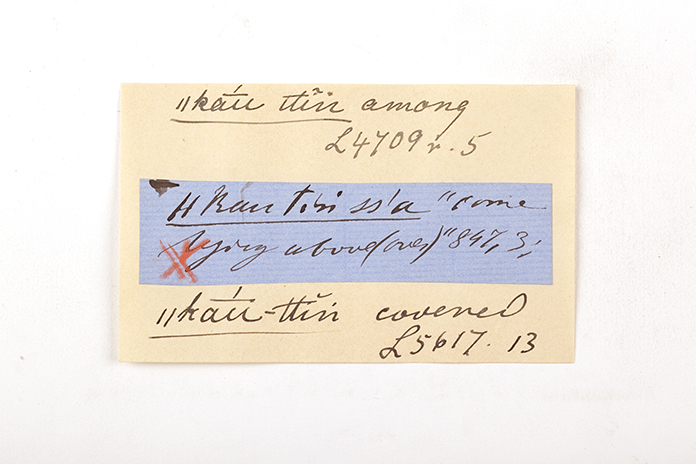 ǁkā́ú ttĩń among
L4709 r. 5
ǁkau tĩń ssʼa "come
lying above (over)" 847, 3,
ǁkā́ú-ttĭń covered
L5617. 13